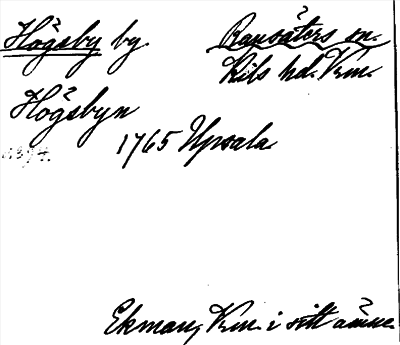 Högsby by.
Ransäters sn.
Kils hd. Vrm.
Högsbyn
1765 Upsala
Ekman, Vrm. i sitt ämne.